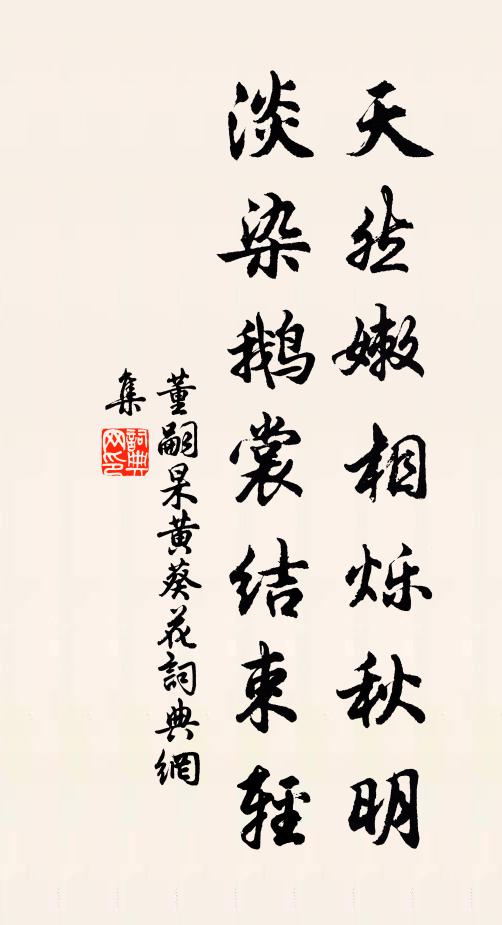 天然嫩相烁秋明
淡染鹅裳结束轻
董嗣杲黄葵花詞典網
集
詞典
网印